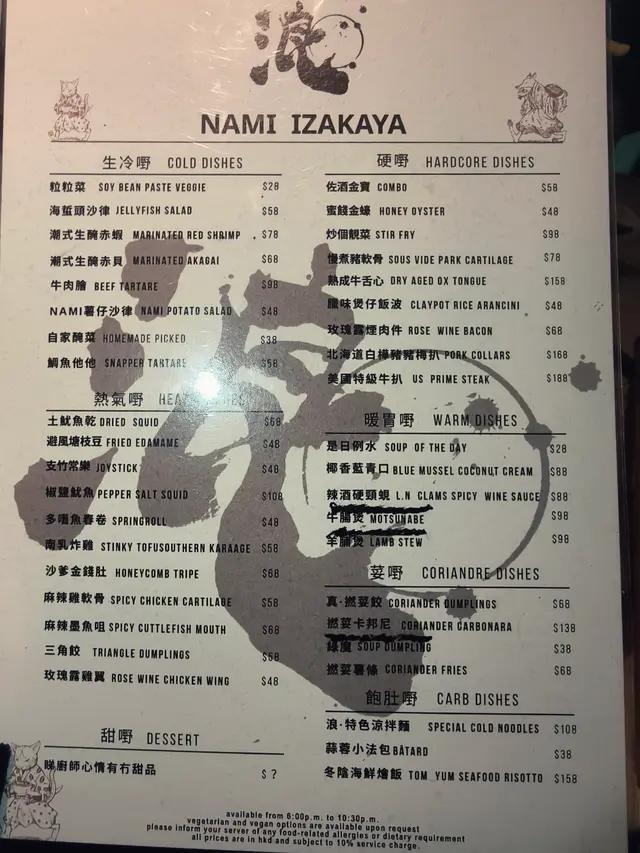 浪
NAMI IZAKAYA
生冷嘢 COLD DISHES
粒粒菜 SOY BEAN PASTE VEGGIE $28
海蜇頭沙律 JELLYFISH SALAD $58
潮式生醃赤蝦 MARINATED RED SHRIMP $78
潮式生醃赤貝 MARINATED AKAGAI $68
牛肉膾 BEEF TARTARE $98
NAMI薯仔沙律 NAMI POTATO SALAD $48
自家醃菜 HOMEMADE PICKED $38
鯛魚他他 SNAPPER TARTARE $58
熱氣嘢
土魷魚乾 DRIED SQUID $68
避風塘枝豆 FRIED EDAMAME $48
支竹常樂 JOYSTICK $48
椒鹽魷魚 PEPPER SALT SQUID $108
多嗜魚春卷 SPRINGROLL $48
南乳炸雞 STINKY TOFUSOUTHERN KARAAGE $58
沙爹金錢肚 HONEYCOMB TRIPE $68
麻辣雞軟骨 SPICY CHICKEN CARTILAGE $58
麻辣墨魚咀 SPICY CUTTLEFISH MOUTH $68
三角餃 TRIANGLE DUMPLINGS $58
玫瑰露雞翼 ROSE WINE CHICKEN WING $48
甜嘢 DESSERT
睇廚師心情有冇甜品 $ ?
硬嘢 HARDCORE DISHES
佐酒金寶 COMBO $58
蜜餞金蠔 HONEY OYSTER $48
炒個靚菜 STIR FRY $98
慢煮豬軟骨 SOUS VIDE PARK CARTILAGE $78
熟成牛舌心 DRY AGED OX TONGUE $158
臘味煲仔飯波 CLAYPOT RICE ARANCINI $48
玫瑰露煙肉件 ROSE WINE BACON $68
北海道白樺豬豬梅扒 PORK COLLARS $168
美國特級牛扒 US PRIME STEAK $188
暖胃嘢 WARM DISHES
是日例水 SOUP OF THE DAY $28
椰香藍青口 BLUE MUSSEL COCONUT CREAM $88
辣酒硬頸蜆 L.N CLAMS SPICY WINE SAUCE $88
牛腸煲 MOTSUNABE $98
羊腩煲 LAMB STEW $98
荽嘢 CORIANDRE DISHES
真·撚荽餃 CORIANDER DUMPLINGS $68
撚荽卡邦尼 CORIANDER CARBONARA $138
SOUP DUMPLING $38
撚荽薯條 CORIANDER FRIES $68
飽肚嘢 CARB DISHES
浪·特色涼拌麵 SPECIAL COLD NOODLES $108
蒜蓉小法包 BÂTARD $38
冬陰海鮮燴飯 TOM YUM SEAFOOD RISOTTO $158
available from 6:00p.m. to 10:30p.m.
vegetarian and vegan options are available upon request
please inform your server of any food-related allergies or dietary requirement
all prices are in hkd and subject to 10% service charge.